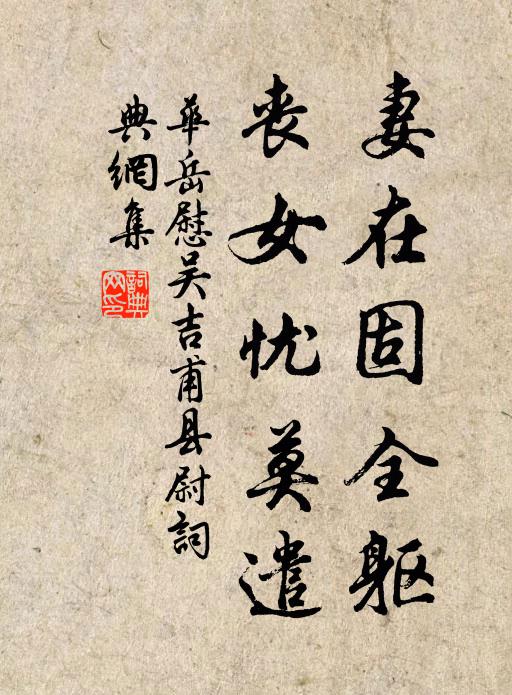 妻在固全躯
丧女忧莫遣
华岳慰吴吉甫县尉詞
典網集
詞典网印